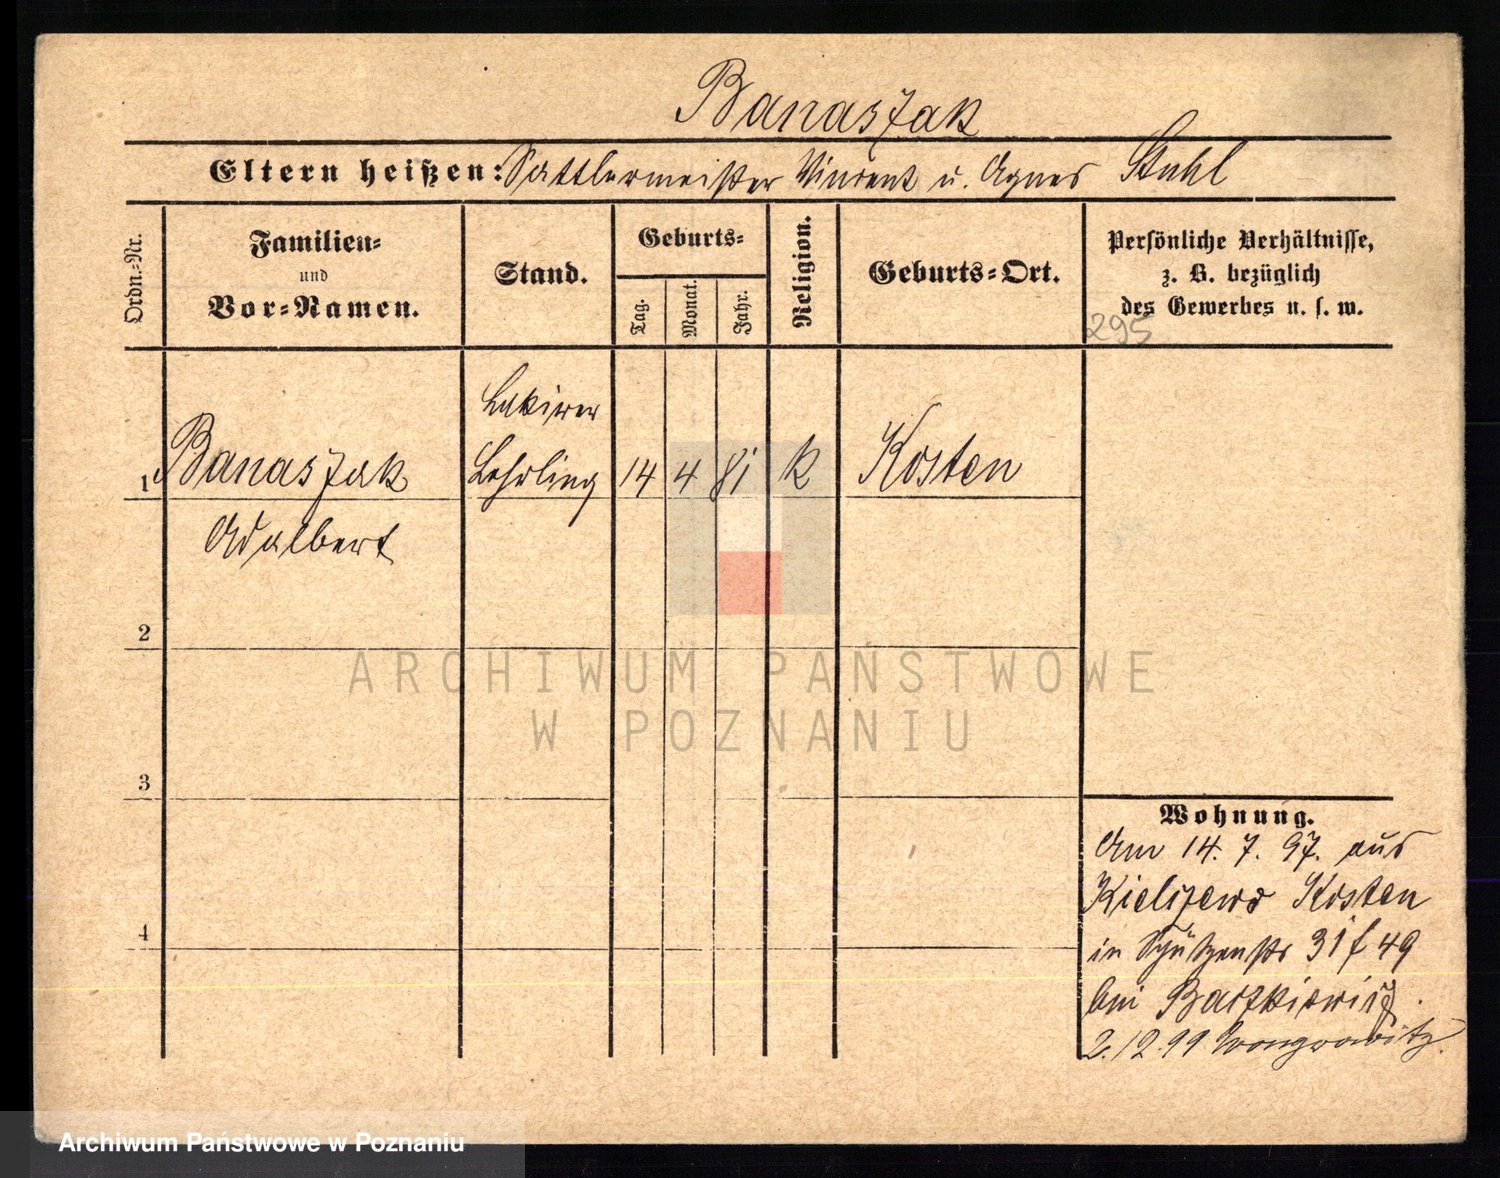 Banaszak
Eltern heißen: Sattlermeister Vincent u. Agnes Stuhl
Ordn.=Nr.
Familien=
und
Vor=Namen.
Stand.
Geburts=
Tag.
Monat.
Jahr.
Religion.
Geburts=Ort.
Persönliche Verhältnisse,
z. B. bezüglich
des Gewerbes u. s. w.
295
Lakirer
1 Banaszak Lehrling 14 4 81 k Kosten
Adalbert
2
ARCHIWUM PAŃSTWOWE
W POZNANIU
3
Wohnung.
Am 14. 7. 97. aus
Kielczewo Kosten
in Schützenstr 31 f 49
bei
2.12.99 Wongrowitz.
4
Archiwum Państwowe w Poznaniu